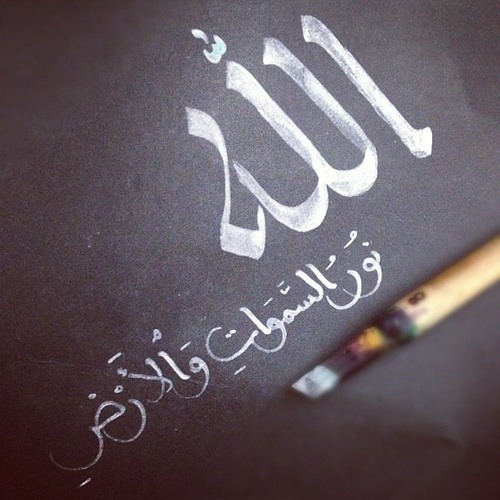 اللّه
نُورُ السَّمَوَاتِ وَالْأَرْضِ